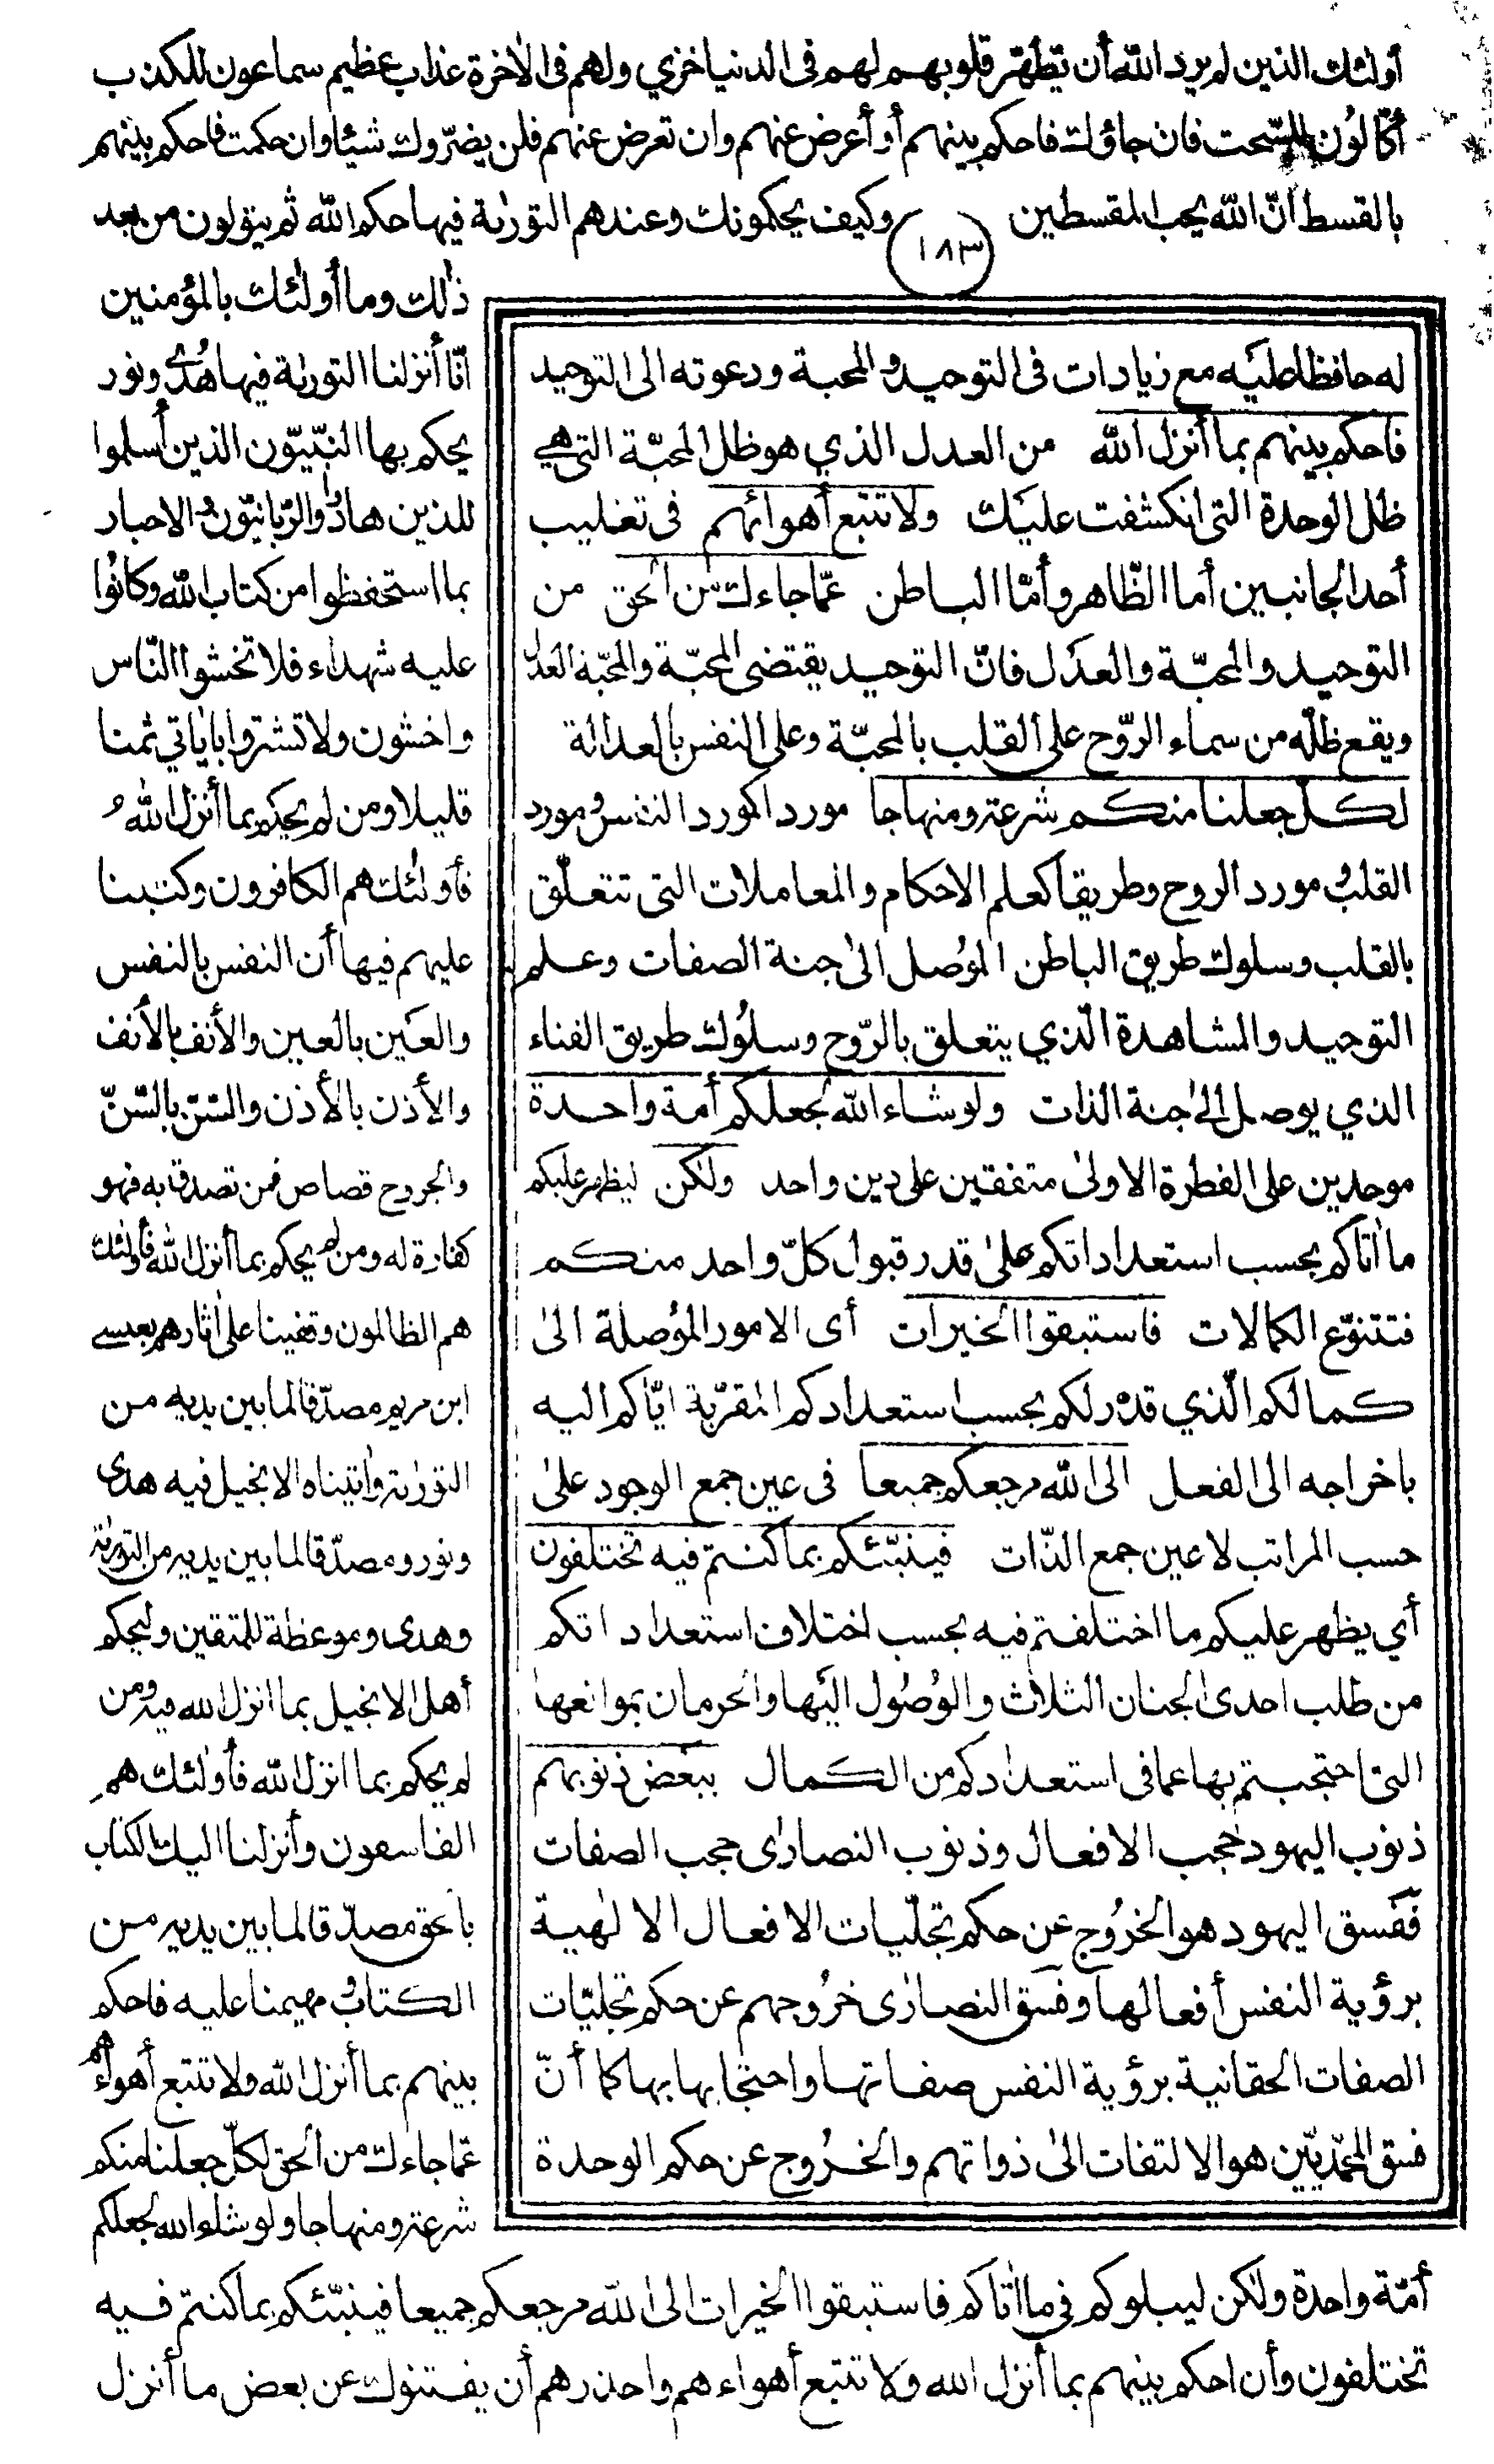 أولئك الذين لم يرد الله أن يطهّر قلوبهم لهم فى الدنيا خزي ولهم فى الآخرة عذاب عظيم سماعون للكذب
أكّالون للسّحت فان جاؤك فاحكم بينهم أو أعرض عنهم وان تعرض عنهم فلن يضرّوك شيئا وان حكمت فاحكم بينهم
بالقسط انّ الله يحب المقسطين وكيف يحكمونك وعندهم التورٰية فيها حكم الله ثم يتولون من بعد
١٨٣
ذٰلك وما أولٰئك بالمؤمنين
انّا أنزلنا التورٰية فيها هُدًى ونور
يحكم بها النبّيّون الذين أسلموا
للذين هادُوا والرّبانيّون والاحبار
بما استحفظوا من كتاب الله وكانُوا
عليه شهداء فلا تخشوا النّاس
واخشون ولا تشتروا باٰياتي ثمنا
قليلا ومن لم يحكم بما أنزل اللهُ
فأولٰئك هم الكافرون وكتبنا
عليهم فيها أن النفس بالنفس
والعَين بالعين والأنف بالأنف
والأذن بالأذن والسّنّ بالسّنّ
والجروح قصاص فمن تصدق به فهو
كفارة له ومن لم يحكم بما أنزل الله فأولئك
هم الظالمون وقفينا على اٰثارهم بعيسى
ابن مريم مصدّقا لما بين يديه من
التورٰية واٰتيناه الانجيل فيه هدى
ونور ومصدّقا لما بين يديه من التورٰية
وهدى وموعظة للمتقين وليحكم
أهل الانجيل بما انزل الله فيه ومن
لم يحكم بما انزل الله فأولٰئك هم
الفاسقون وأنزلنا اليك الكتاب
بالحق مصدّقا لما بين يديه من
الكتاب ومهيمنا عليه فاحكم
بينهم بما أنزل الله ولا تتبع أهواءهم
عمّا جاءك من الحق لكلّ جعلنا منكم
شرعة ومنهاجا ولو شاء الله لجعلكم
له حافظا عليه مع زيادات فى التوحيد والمحبة ودعوته الى التوحيد
فاحكم بينهم بما أنزل الله من العدل الذي هو ظل المحبّة التى هي
ظل الوحدة التى انكشفت عليك ولا تتبع أهوائهم فى تغليب
أحد الجانبين أما الظّاهر وأمّا الباطن عمّا جاءك من الحق من
التوحيد والمحبّة والعدل فانّ التوحيد يقتضى المحبّة والمحبّة العدل
ويقع ظلّه من سماء الرّوح على القلب بالمحبّة وعلى النفس بالعدالة
لكلّ جعلنا منكم شرعة ومنهاجا موردا كمورد النفس ومورد
القلب ومورد الروح وطريقا كعلم الاحكام والمعاملات التى تتعلّق
بالقلب وسلوك طريق الباطن الموُصل الىٰ جنة الصفات وعلم
التوحيد والمشاهدة الّذي يتعلق بالرّوح وسلوُك طريق الفناء
الذي يوصل الىٰ جنة الذات ولو شاء الله لجعلكم أمة واحدة
موحدين على الفطرة الاولىٰ متفقين على دين واحد ولٰكن ليظهر عليكم
ما اٰتاكم بحسب استعداداتكم علىٰ قدر قبول كلّ واحد منكم
فتتنوّع الكمالات فاستبقوا الخيرات أى الامور الموُصلة الىٰ
كمالكم الّذي قدّر لكم بحسب استعدادكم المقرّبة ايّاكم اليه
باخراجه الى الفعل الى الله مرجعكم جميعا فى عين جمع الوجود علىٰ
حسب المراتب لا عين جمع الذّات فينبّئكم بما كنتم فيه تختلفون
أي يظهر عليكم ما اختلفتم فيه بحسب اختلاف استعداداتكم
من طلب احدى الجنان الثلاث والوُصُول اليها والحرمان بموانعها
التى احتجبتم بها عما فى استعدادكم من الكمال ببعض ذنوبهم
ذنوب اليهود حجب الافعال وذنوب النصارٰى حجب الصفات
ففسق اليهود هو الخرُوج عن حكم تجلّيات الافعال الالٰهية
برؤية النفس أفعالها وفسق النصارٰى خرُوجهم عن حكم تجليّات
الصفات الحقانية برؤية النفس صفاتها واحتجابها بها كما أنّ
فسق المحمّديّين هو الالتفات الىٰ ذواتهم والخرُوج عن حكم الوحدة
أمّة واحدة ولٰكن ليبلوكم في ما اٰتاكم فاستبقوا الخيرات الى الله مرجعكم جميعا فينبّئكم بما كنتم فيه
تختلفون وأن احكم بينهم بما أنزل الله ولا تتبع أهواءهم واحذرهم أن يفتنوك عن بعض ما أنزل